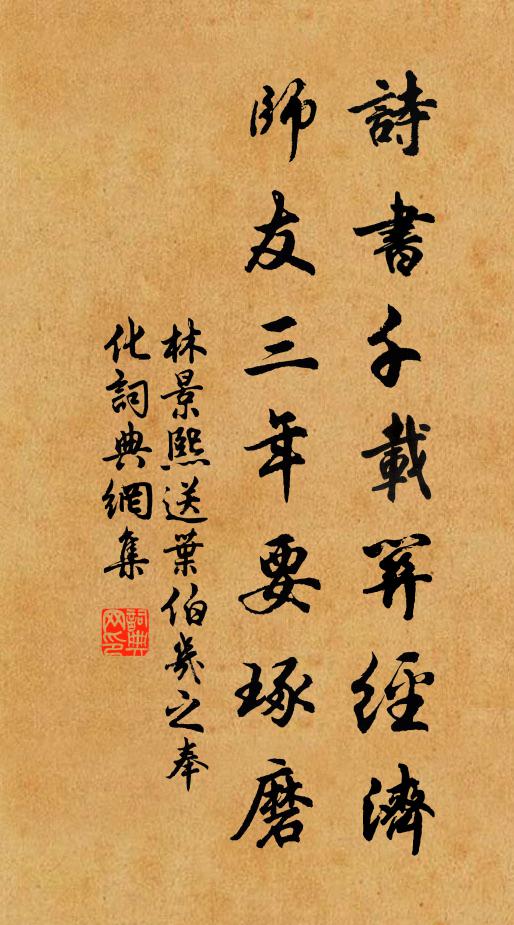 詩書千載關經濟
師友三年要琢磨
林景熙送葉伯幾之奉
化詞典網集
詞典
网印